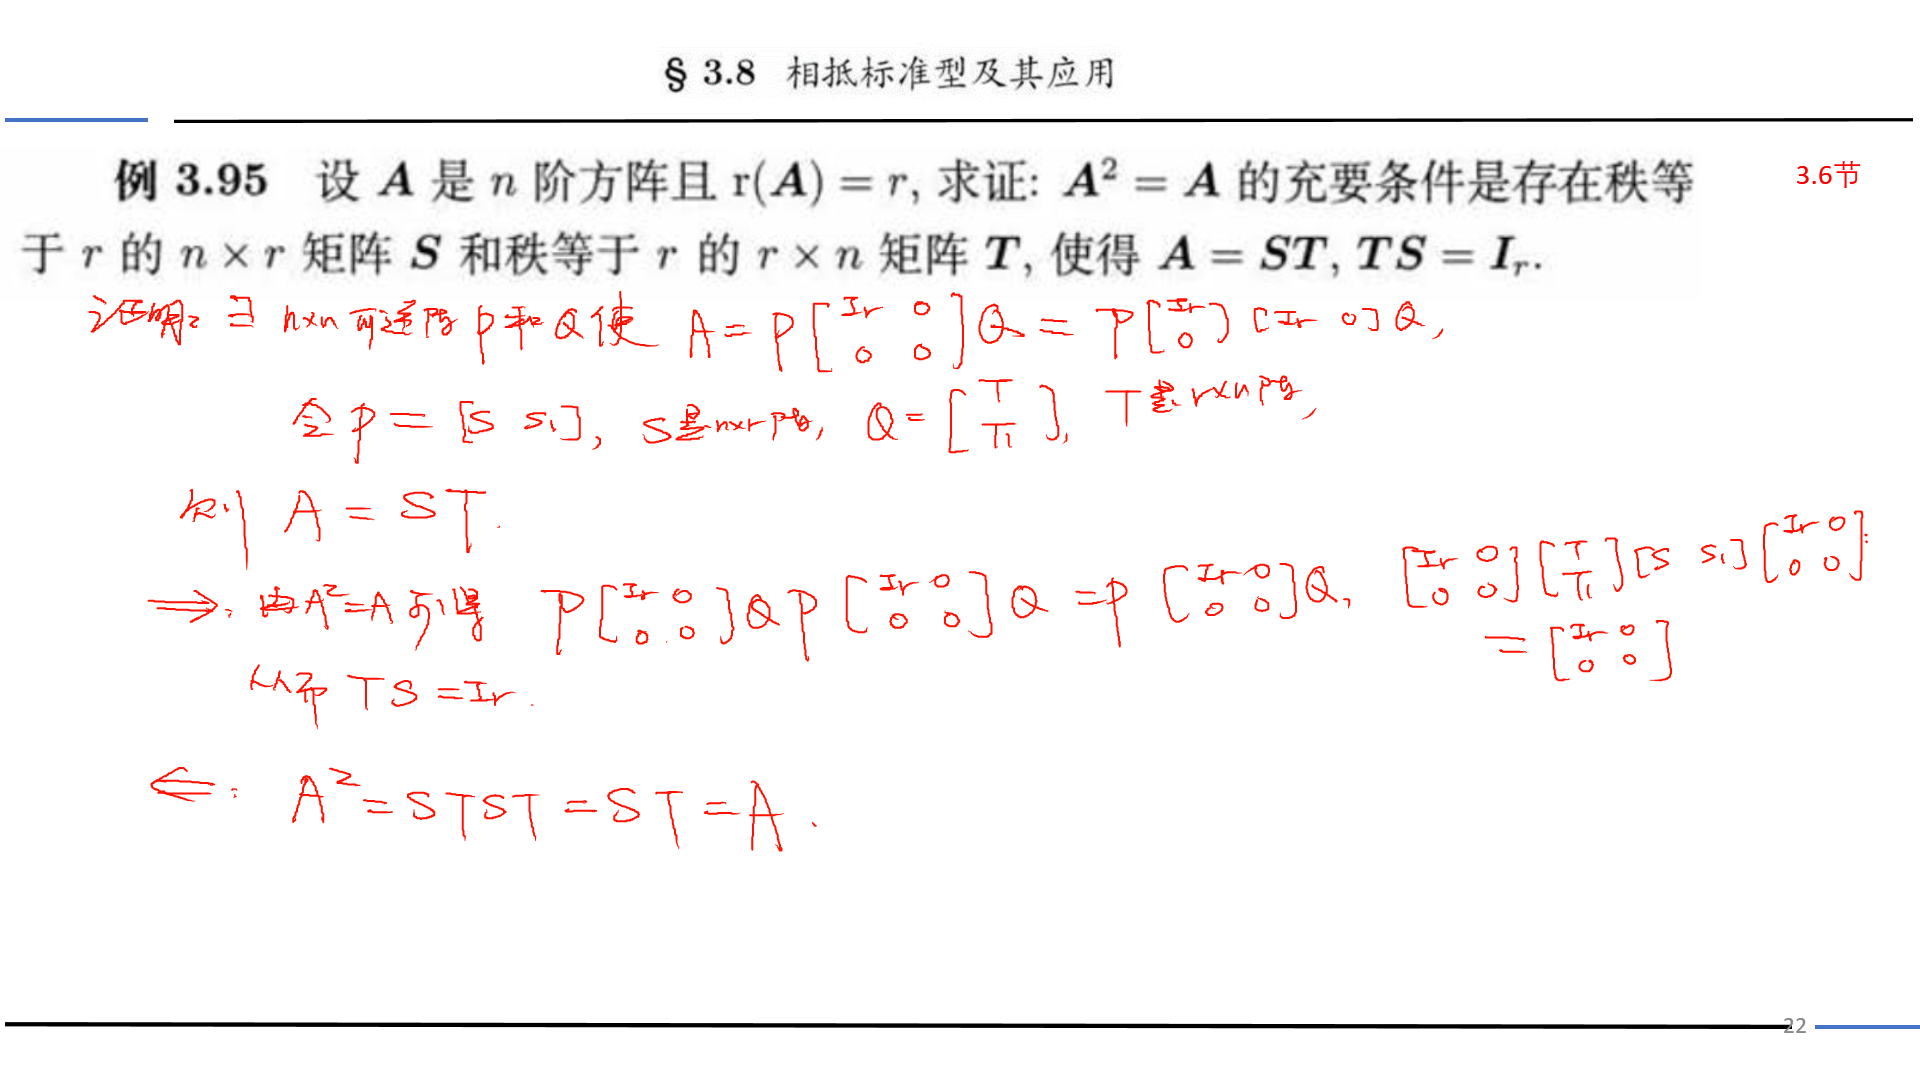 § 3.8 相抵标准型及其应用
例 3.95 设 A 是 n 阶方阵且 r(A) = r, 求证: A² = A 的充要条件是存在秩等
3.6节
于 r 的 n × r 矩阵 S 和秩等于 r 的 r × n 矩阵 T, 使得 A = ST, TS = Iᵣ.
证明: ∃ n×n 可逆阵 P 和 Q 使 A = P [Ir 0; 0 0] Q = P [Ir; 0] [Ir 0] Q,
令 P = [S S₁], S是n×r阵, Q = [T; T₁], T是r×n阵,
则 A = ST.
⇒: 由A²=A 可得 P [Ir 0; 0 0] Q P [Ir 0; 0 0] Q = P [Ir 0; 0 0] Q, [Ir 0; 0 0] [T; T₁] [S S₁] [Ir 0; 0 0]
= [Ir 0; 0 0]
从而 TS = Ir.
⇐: A² = STST = ST = A.
22